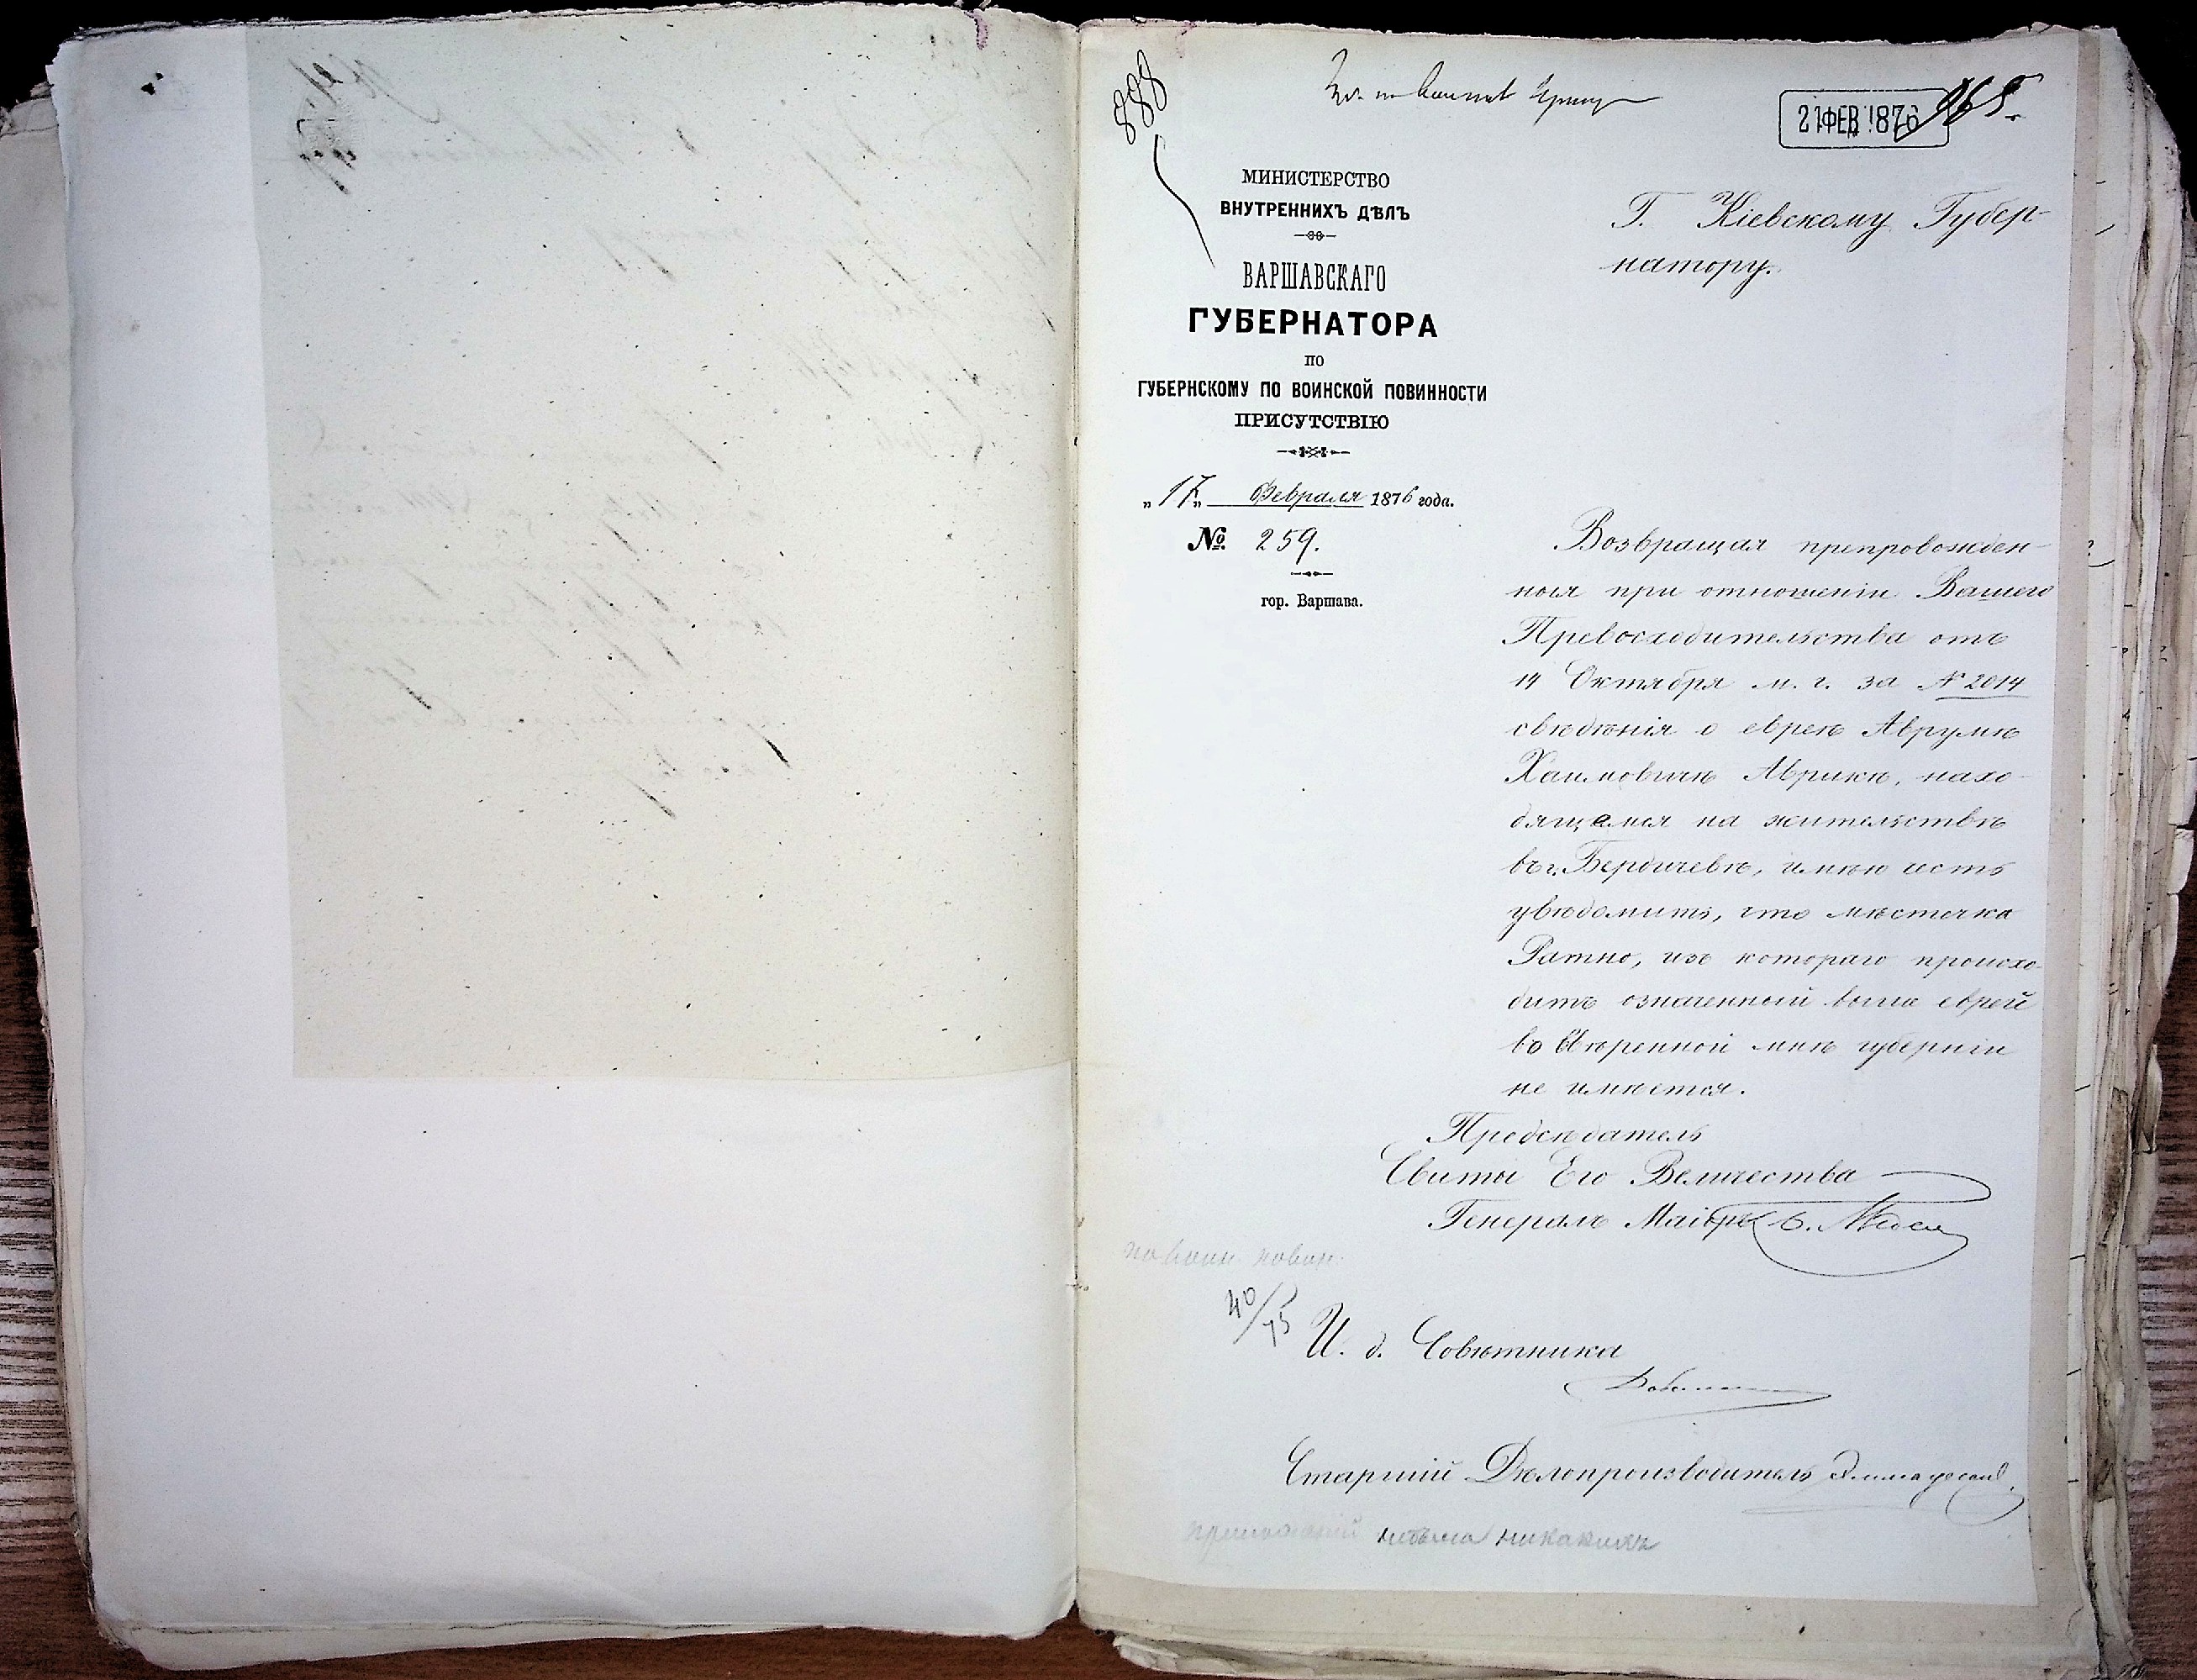 888
21 ФЕВ 1876
965.
МИНИСТЕРСТВО
ВНУТРЕННИХЪ ДѢЛЪ
ВАРШАВСКАГО
ГУБЕРНАТОРА
ПО
ГУБЕРНСКОМУ ПО ВОИНСКОЙ ПОВИННОСТИ
ПРИСУТСТВІЮ
„17„ Февраля 1876 года.
№ 259.
гор. Варшава.
Г. Кіевскому Губер-
натору.
Возвращая препровожден-
ныя при отношеніи Вашего
Превосходительства отъ
14 Октября м. г. за № 2014
свѣдѣнія о евреѣ Аврумѣ
Хаимовичѣ Аврикѣ, нахо-
дящемся на жительствѣ
въ г. Бердичевѣ, имѣю честь
увѣдомить, что мѣстечка
Ратно, изъ котораго происхо-
дитъ означенный выше еврей
во ввѣренной мнѣ губерніи
не имѣется.
Предсѣдатель
Свиты Его Величества
Генералъ Маіоръ
по воин. повин.
40/75
И. д. Совѣтника
Старшій Дѣлопроизводитель
приложеній небыло никакихъ